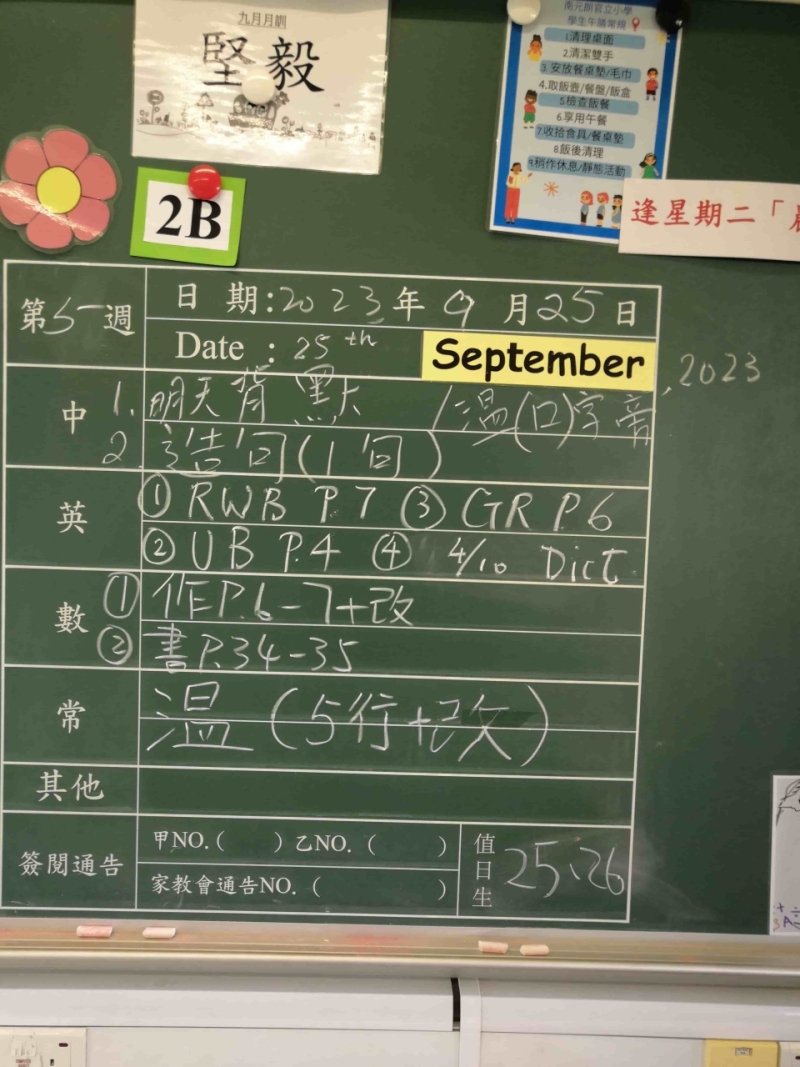 九月月訓
堅毅
南元朗官立小學
學生午膳常規
1.清理桌面
2.清潔雙手
3.安放餐桌墊/毛巾
4.取飯壺/餐盤/飯盒
5檢查飯餐
6.享用午餐
7.收拾食具/餐桌墊
8.飯後清理
9.稍作休息/靜態活動
2B
逢星期二「
第5週
日期:2023年9月25日
Date : 25th September, 2023
中 1. 明天背默 溫(口)字帝
2. 造句(1句)
英 ① RWB P.7 ③ GR P.6
② UB P.4 ④ 4/10 Dict.
數 ① 作P.6-7+改
② 書P.34-35
常 溫(5行+改)
其他
簽閱通告 甲NO.( ) 乙NO.( )
家教會通告NO.( )
值日生 25、26